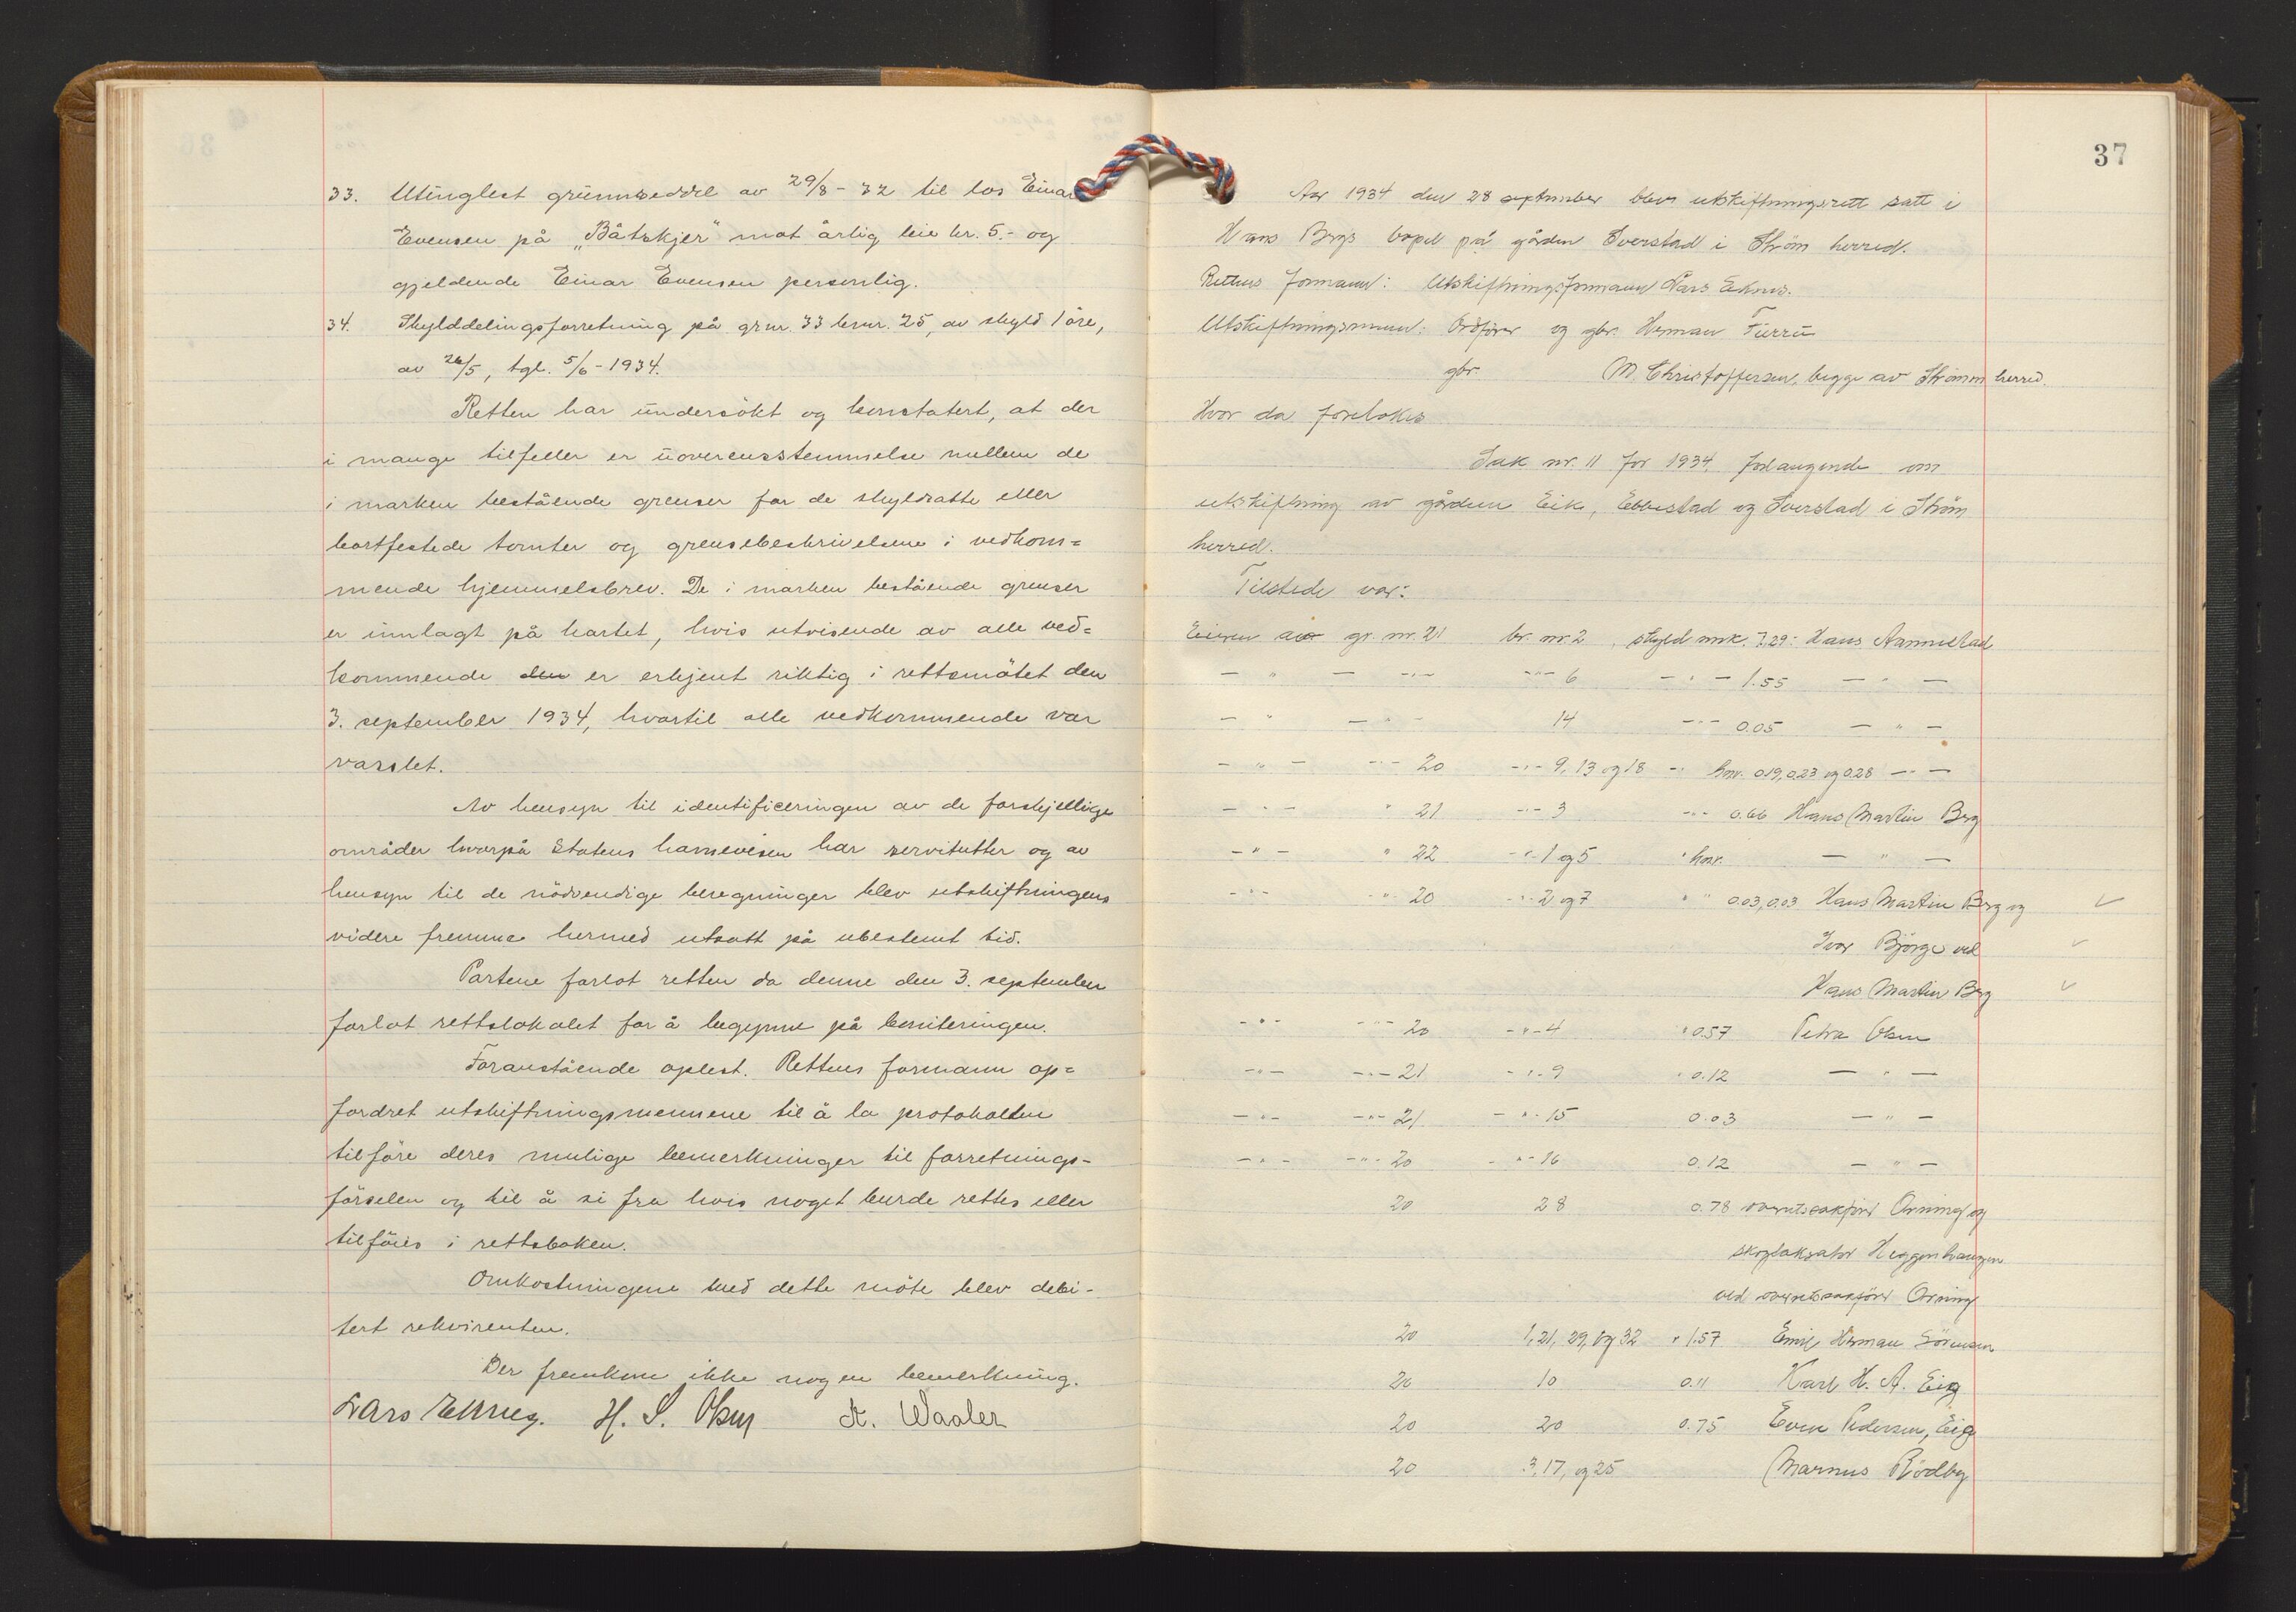 33. Utinglest grunnseddel av 29/8 - 32 til los Einar
Evensen på „Båtskjer" mot årlig leie kr. 5.- og
gjeldende Einar Evensen personlig.
34. Skylddelingsforretning på grnr. 33 brnr. 25, av skyld 1 öre,
av 26/5, tgl. 5/6 - 1934.
Retten har undersökt og konstatert, at der
i mange tilfeller er uoverensstemmelse mellem de
i marken bestående grenser for de skyldsatte eller
bortfestede tomter og grensebeskrivelsene i vedkom=
mende hjemmelsbrev. De i marken bestående grenser
er innlagt på kartet, hvis utvisende av alle ved=
kommende den er erkjent riktig i rettsmötet den
3. september 1934, hvortil alle vedkommende var
varslet.
Av hensyn til identificeringen av de forskjellige
områder hvorpå Statens havnevesen har servitutter og av
hensyn til de nödvendige beregninger blev utskiftningens
videre fremme hermed utsatt på ubestemt tid.
Partene forlot retten da denne den 3. september
forlot rettslokalet for å begynne på boniteringen.
Foranstående oplest. Rettens formann op=
fordret utskiftningsmennene til å la protokollen
tilföre deres mulige bemerkninger til forretnings-
förselen og til å si fra hvis noget burde rettes eller
tilföies i rettsboken.
Omkostningene med dette möte blev debi-
tert rekvirenten.
Der fremkom ikke nogen bemerkning.
Lars Eknes. H. S. Olsen A. Waaler
37
Aar 1934 den 28 september blev utskiftningsrett satt i
Hans Bergs bopel på gården Sverstad i Ström herred.
Rettens formann: Utskiftningsformann Lars Eknes.
Utskiftningsmenn: Ordförer og gbr. Herman Furru
gbr. M. Christoffersen, begge av Strömm herred.
Hvor da foretokes
Sak nr. 11 for 1934, forlangende om
utskiftning av gårdene Eik, Ebbestad og Sverstad i Ström
herred.
Tilstede var:
Eieren av gr. nr. 21 br. nr. 2, skyld mrk. 7,29: Hans Aannestad
- " - - " - - " - 6 - " - 1.55 - " -
- " - - " - 14 - " - 0.05 - " -
- " - - " - 20 - " - 9, 13 og 18 - " hnv. 0.19, 0.23 og 0.28 - " -
- " - " 21 - " - 3 - " - 0.66 Hans Martin Berg
- " - " 22 - " - 1 og 5 " hnv. - " -
- " - - " - 20 - " - 2 og 7 " " 0.03, 0.03 Hans Martin Berg og
Ivar Björge ved
Hans Martin Berg
- " - - " - 20 - " - 4 " 0.57 Petra Olsen
- " - - " - 21 - " - 9 " 0.12 - " -
- " - - " - 21 - " - 15 0.03 - " -
- " - - " - 20 - " - 16 0.12 - " -
20 28 0.78 overretssakförer Orning og
skogtaksator Heggenhaugen
ved overretssakförer Orning
20 1, 21, 29, og 32 " 1.57 Emil Herman Sörensen
20 10 0.11 Karl H. A. Eig
20 20 0.75 Even Pedersen, Eig
20 3, 17, og 25 Marnus Rödby